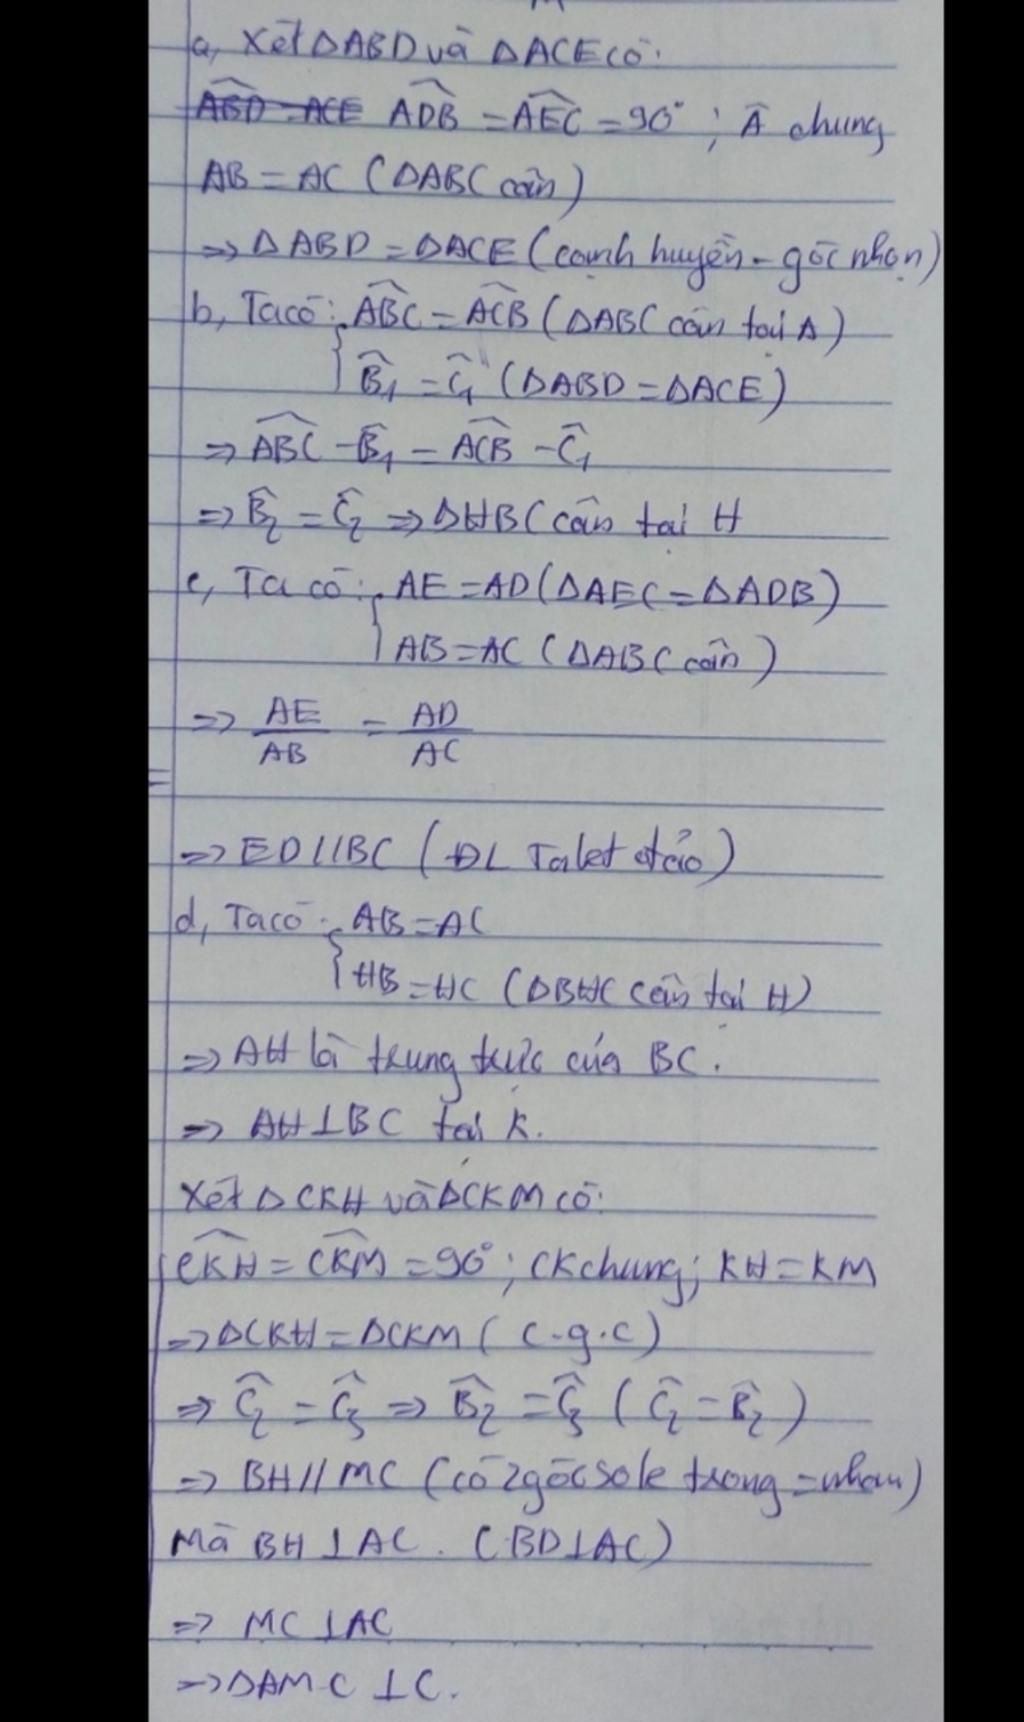 a, Xét ΔABD và ΔACE có:
ABD = ACE ADB = AEC = 90° ; Â chung
AB = AC (ΔABC cân)
=> ΔABD = ΔACE (cạnh huyền - góc nhọn)
b, Ta có: ABC = ACB (ΔABC cân tại A)
B̂1 = Ĉ1 (ΔABD = ΔACE)
=> ABC - B̂1 = ACB - Ĉ1
=> B̂2 = Ĉ2 => ΔHBC cân tại H
c, Ta có: AE = AD (ΔAEC = ΔADB)
AB = AC (ΔABC cân)
=> AE/AB = AD/AC
=> ED // BC (ĐL Talet đảo)
d, Ta có: AB = AC
HB = HC (ΔBHC cân tại H)
=> AH là trung trực của BC.
=> AH ⊥ BC tại K.
Xét ΔCKH và ΔCKM có:
CKH = CKM = 90° ; CK chung ; KH = KM
=> ΔCKH = ΔCKM (c.g.c)
=> Ĉ2 = Ĉ3 => B̂2 = Ĉ3 (Ĉ2 = B̂2)
=> BH // MC (có 2 góc sole trong = nhau)
Mà BH ⊥ AC. (BD ⊥ AC)
=> MC ⊥ AC
=> ΔAMC ⊥ C.